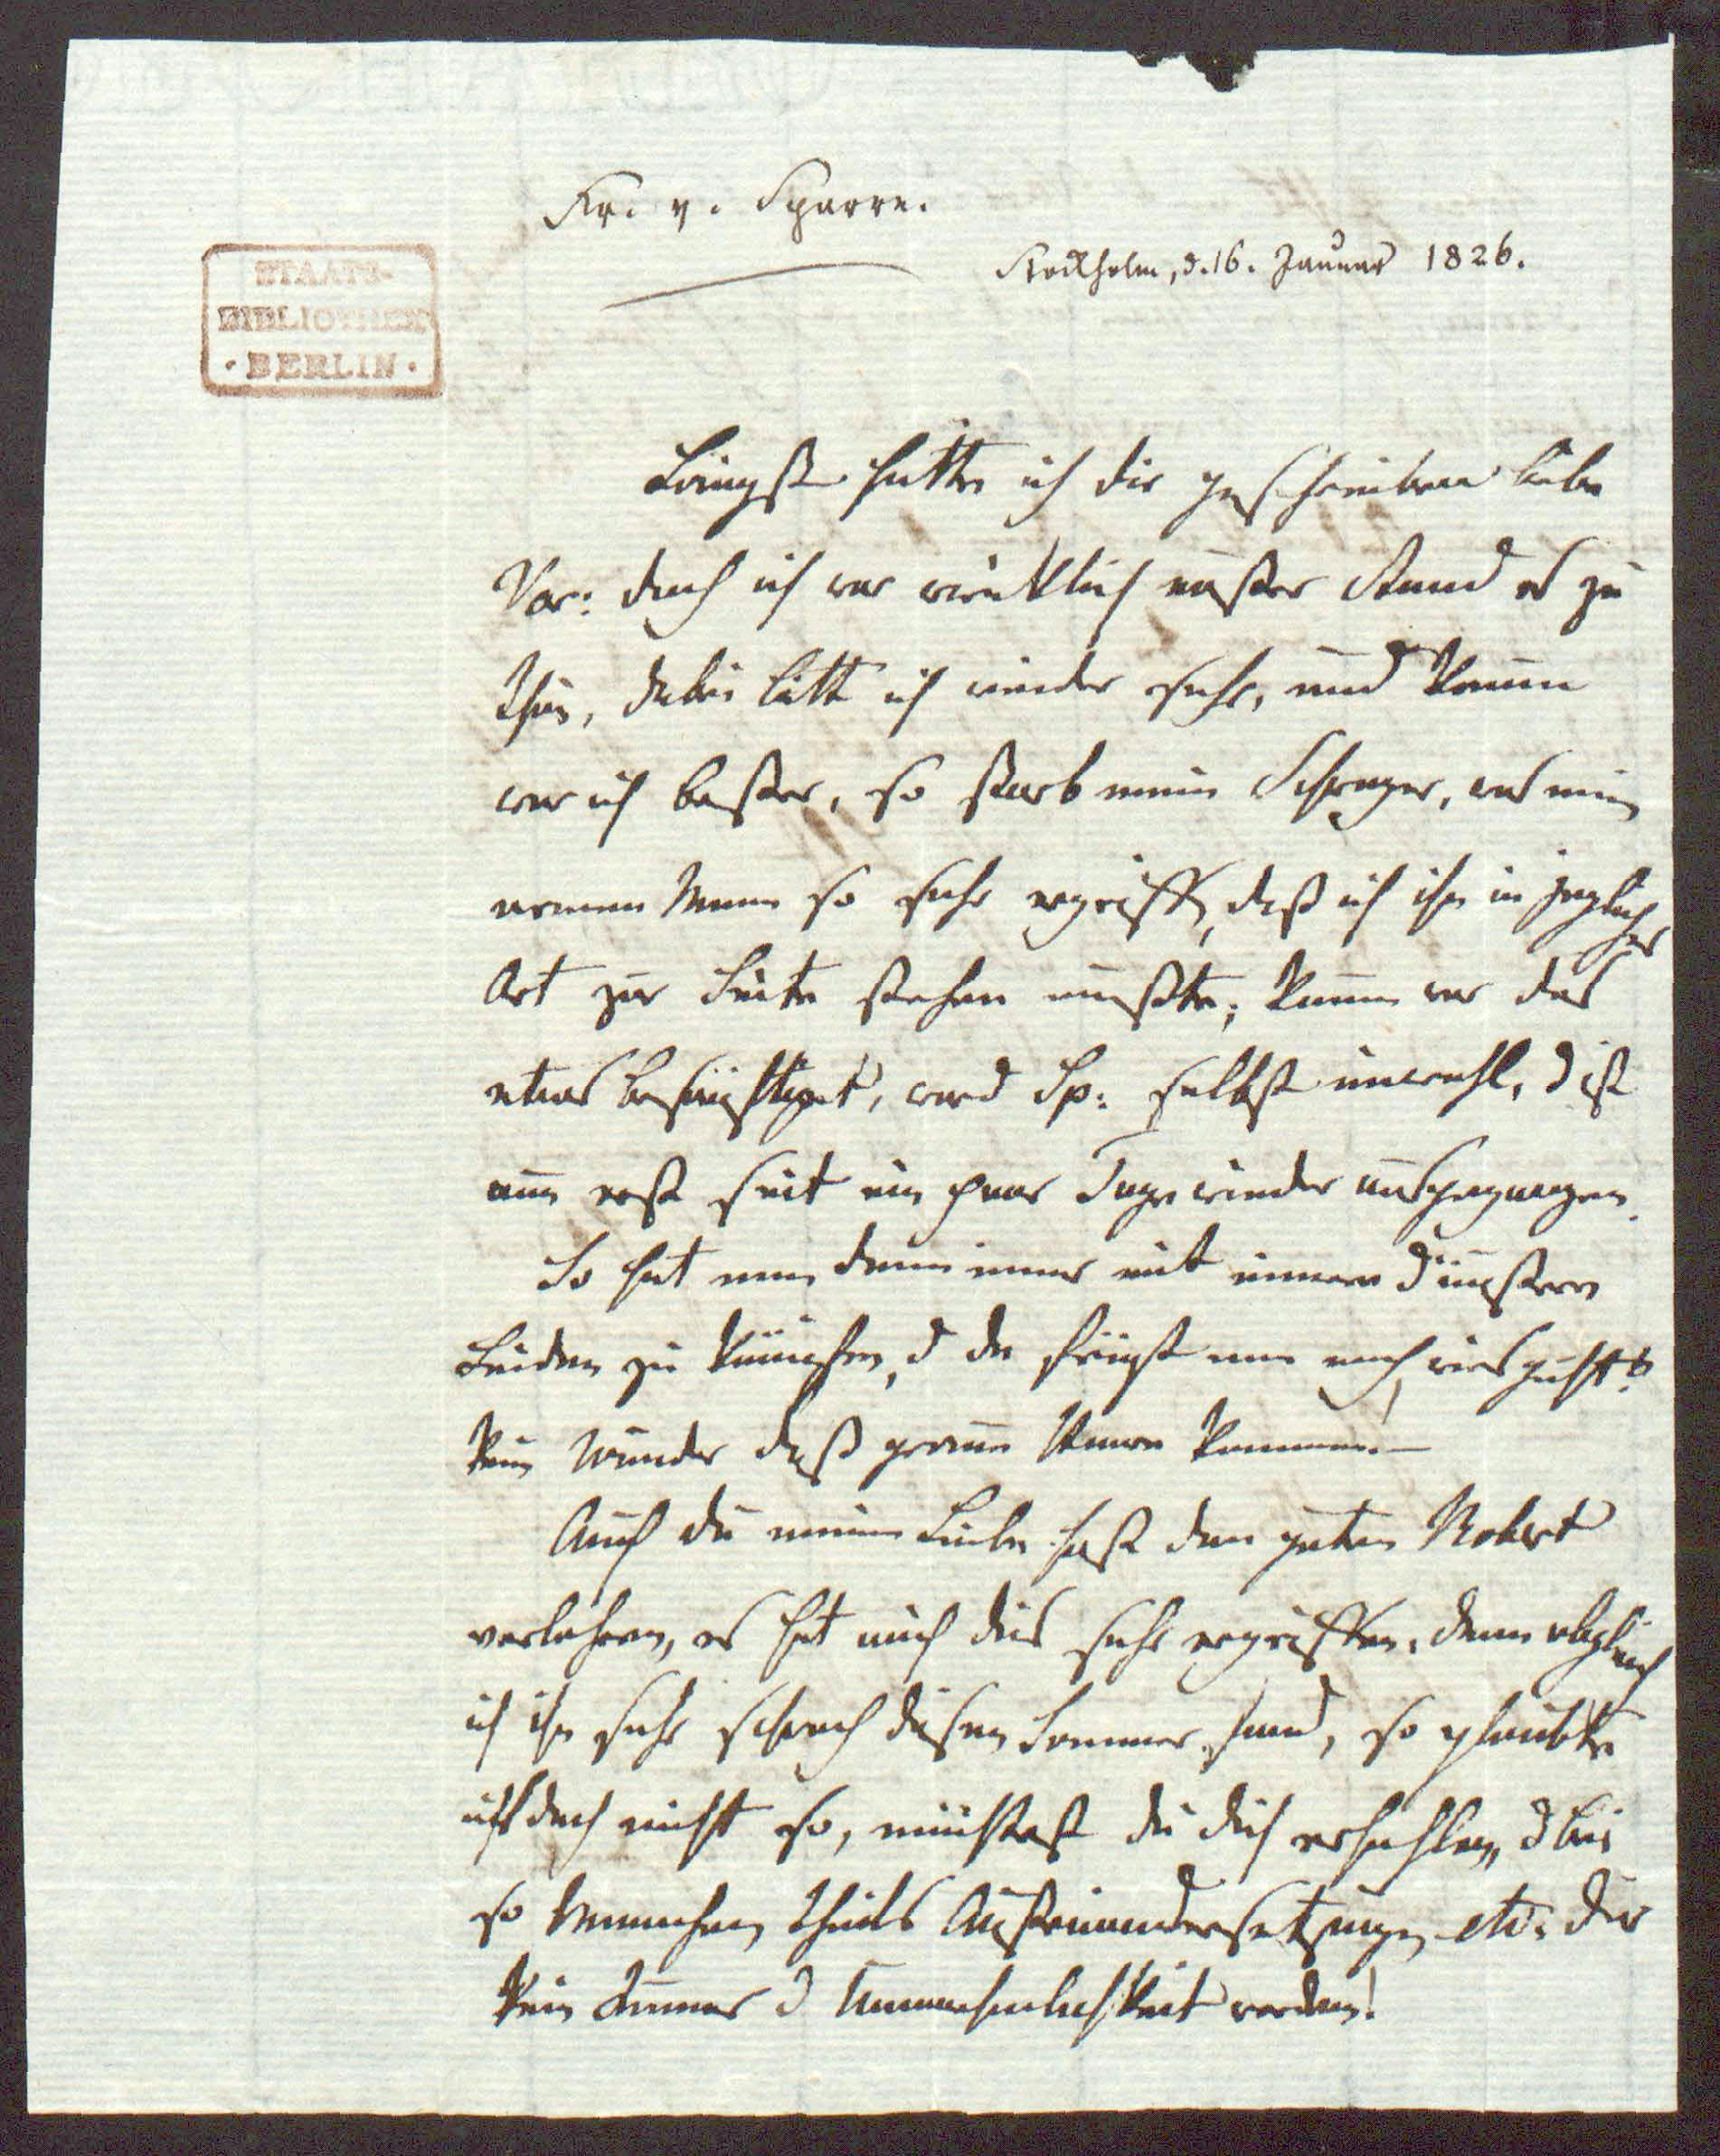 Fr. v. Sparre.
Stockholm, d. 16. Januar 1826.
STAATS-
BIBLIOTHEK
· BERLIN ·
Längst hätte ich dir geschrieben liebe
Var: doch ich war wirklich außer Stand es zu
thun, dabei litt ich wieder sehr, und kaum
war ich besser, so starb mein Schwager, was mein
armen Mann so sehr ergriff, daß ich ihn in jeglicher
Art zur Seite stehen mußte; kaum war das
etwas besänftiget, ward Sp: selbst unwohl, d ist
nun erst seit ein paar Tage wieder ausgegangen.
So hat man denn immer mit innern d äußern
Leiden zu kämpfen, d du frägst nun noch, wies geht?
kein Wunder daß graue Haare kommen! —
Auch du meine Liebe hast den guten Robert
verlohren, es hat mich dies sehr ergriffen, denn obgleich
ich ihn sehr schwach diesen Sommer fand, so glaubte
ichs doch nicht so, möchtest du dich erhohlen, d bei
so manchen theils Auseinandersetzungen etc: dir
kein Kummer d Unannehmlichkeit werden!